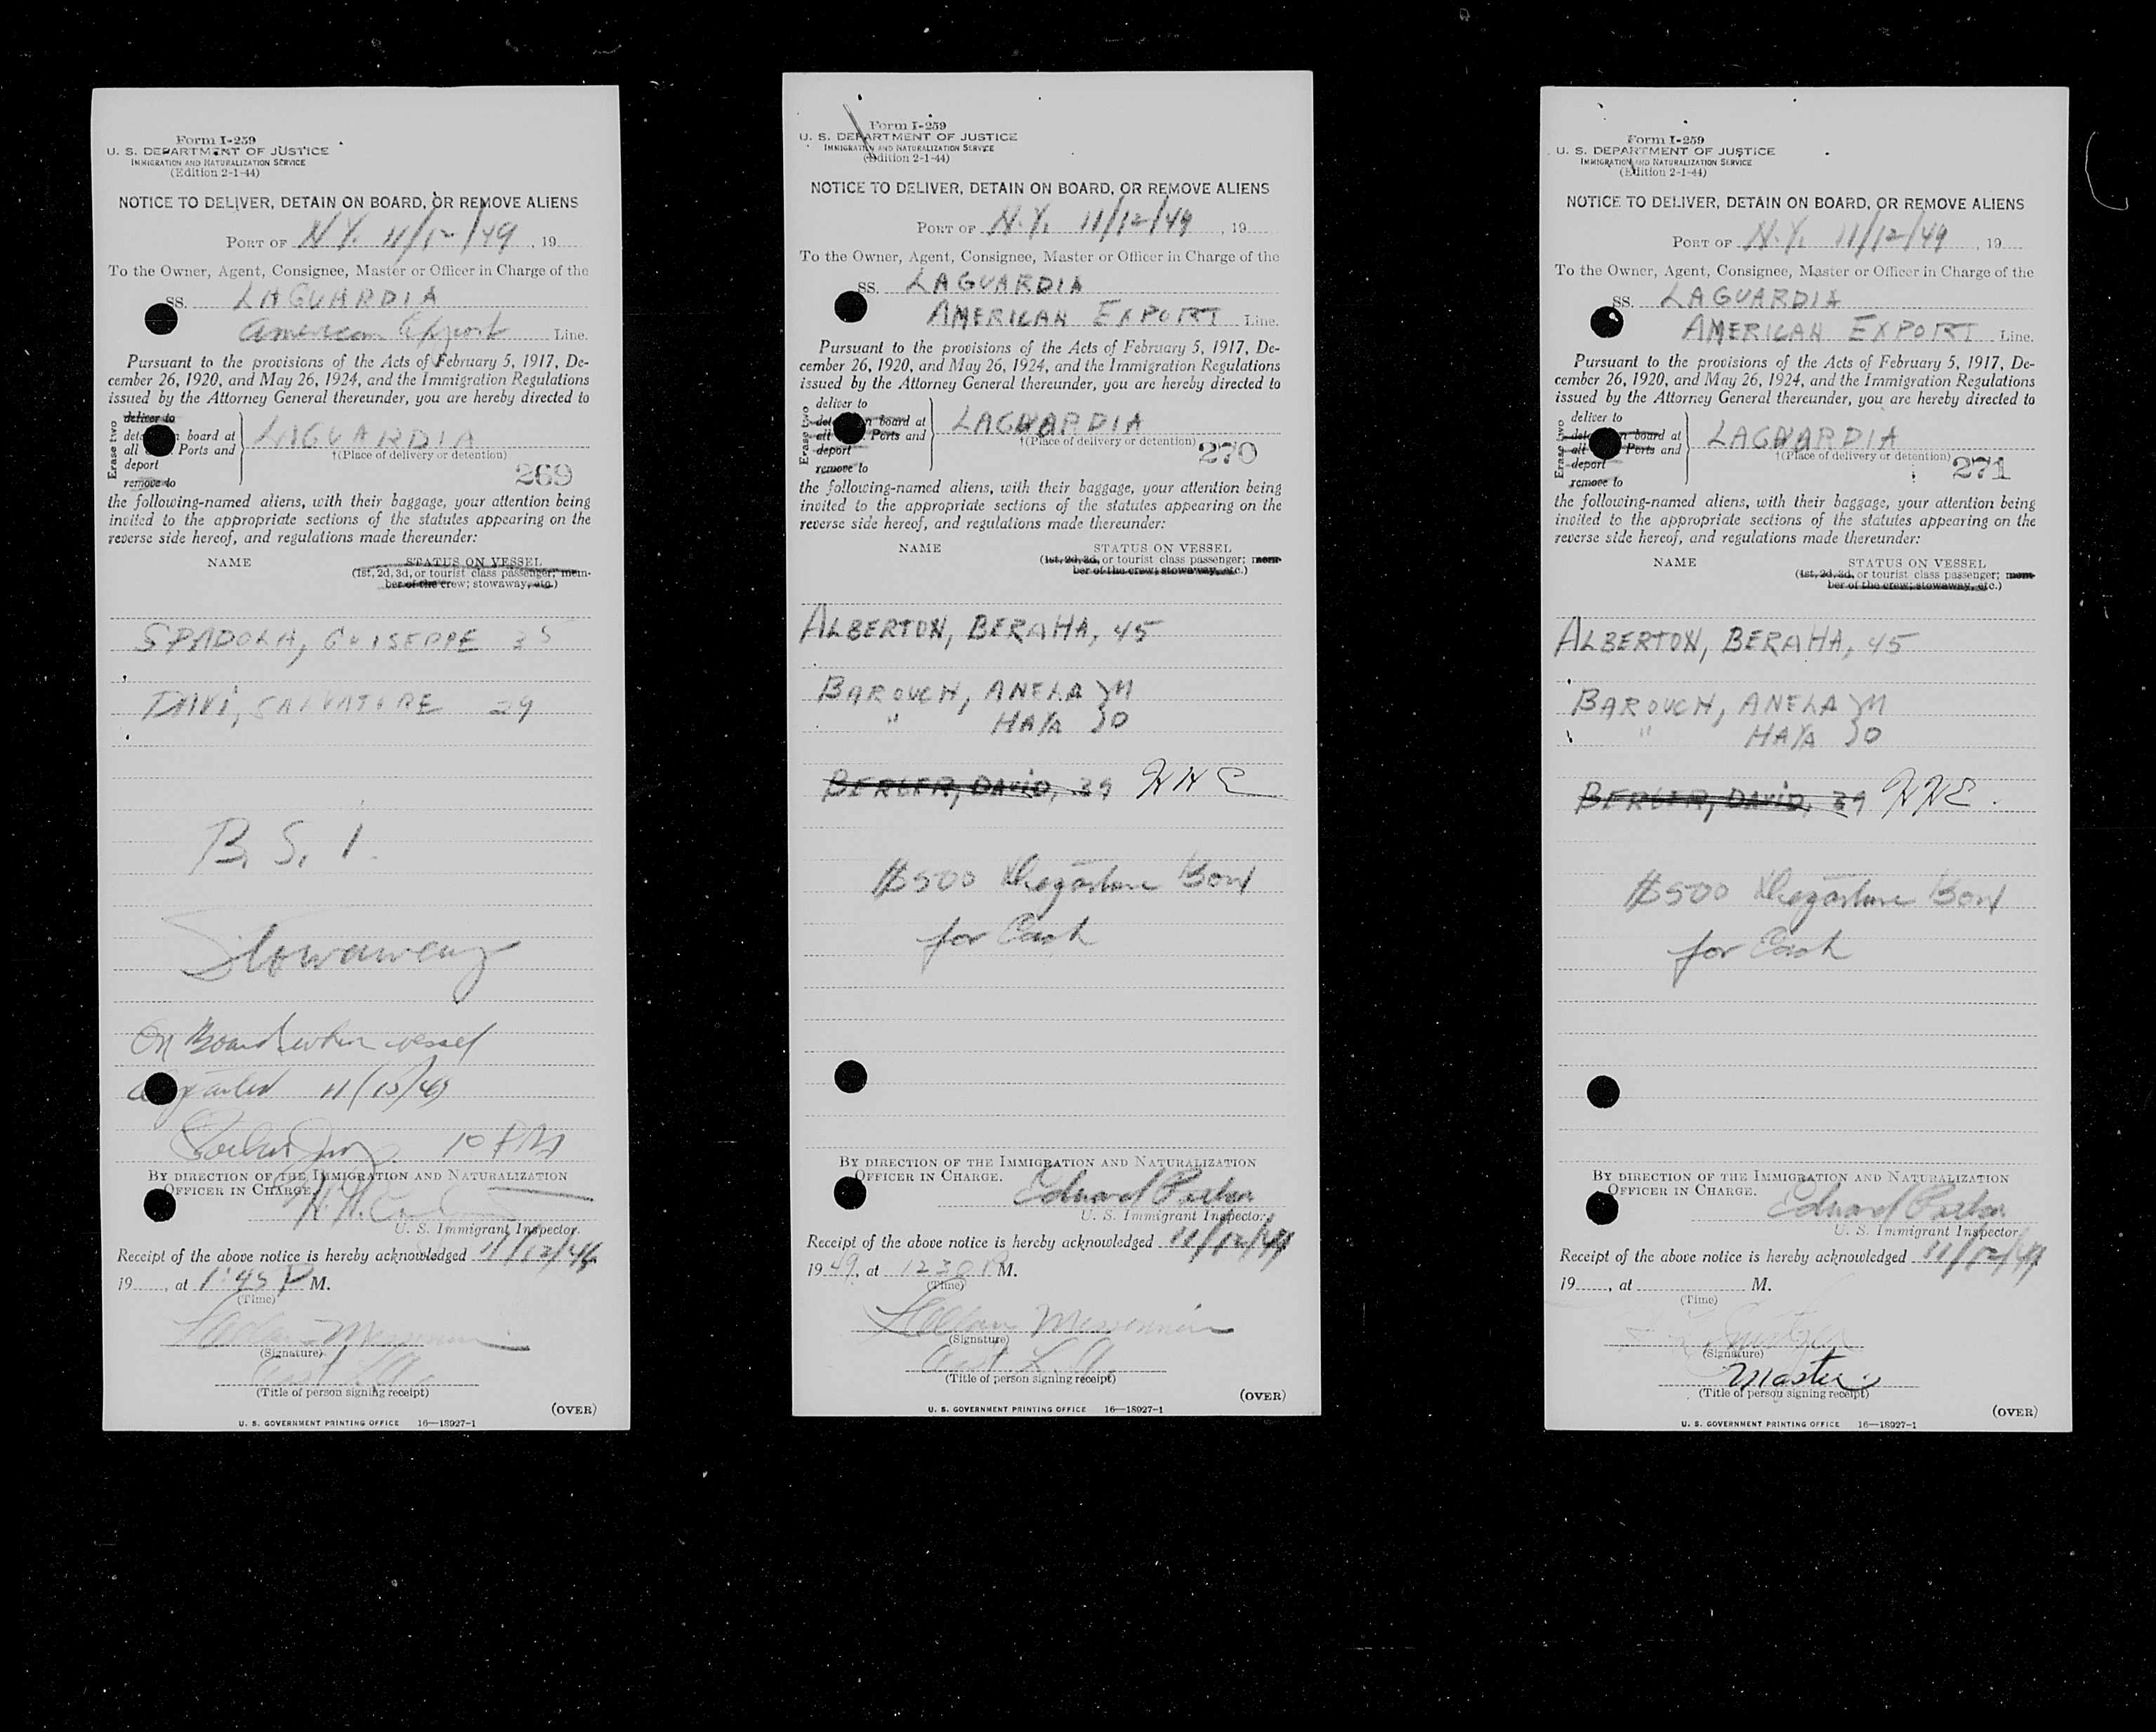 Form I-259
U. S. DEPARTMENT OF JUSTICE
IMMIGRATION AND NATURALIZATION SERVICE
(Edition 2-1-44)
NOTICE TO DELIVER, DETAIN ON BOARD, OR REMOVE ALIENS
PORT OF N.Y. 11/12/49, 19
To the Owner, Agent, Consignee, Master or Officer in Charge of the
SS. LAGUARDIA
American Export Line.
Pursuant to the provisions of the Acts of February 5, 1917, De-
cember 26, 1920, and May 26, 1924, and the Immigration Regulations
issued by the Attorney General thereunder, you are hereby directed to
Erase two
deliver to
board at
all Ports and
deport
remove to
LAGUARDIA
†(Place of delivery or detention)
269
the following-named aliens, with their baggage, your attention being
invited to the appropriate sections of the statutes appearing on the
reverse side hereof, and regulations made thereunder:
NAME STATUS ON VESSEL
(1st, 2d, 3d, or tourist class passenger; mem-
ber of the crew; stowaway, etc.)
SPADOLA, GUISEPPE 35
DAVI, SALVATORE 29
B. S. I.
Stowaway
On Board when vessel
11/15/49
10 PM
BY DIRECTION OF THE IMMIGRATION AND NATURALIZATION
OFFICER IN CHARGE.
U. S. Immigrant Inspector.
Receipt of the above notice is hereby acknowledged 11/12/49
19, at 1:45 P M.
(Time)
(Signature)
(Title of person signing receipt)
(OVER)
U. S. GOVERNMENT PRINTING OFFICE 16—18927-1
Form I-259
U. S. DEPARTMENT OF JUSTICE
IMMIGRATION AND NATURALIZATION SERVICE
(Edition 2-1-44)
NOTICE TO DELIVER, DETAIN ON BOARD, OR REMOVE ALIENS
PORT OF N.Y. 11/12/49, 19
To the Owner, Agent, Consignee, Master or Officer in Charge of the
SS. LAGUARDIA
AMERICAN EXPORT Line.
Pursuant to the provisions of the Acts of February 5, 1917, De-
cember 26, 1920, and May 26, 1924, and the Immigration Regulations
issued by the Attorney General thereunder, you are hereby directed to
Erase two
deliver to
board at
all Ports and
deport
remove to
LAGUARDIA
†(Place of delivery or detention)
270
the following-named aliens, with their baggage, your attention being
invited to the appropriate sections of the statutes appearing on the
reverse side hereof, and regulations made thereunder:
NAME STATUS ON VESSEL
(1st, 2d, 3d, or tourist class passenger; mem-
ber of the crew; stowaway, etc.)
ALBERTON, BERAHA, 45
BAROUCH, ANELA } M
" HAYA } D
BERGER, DAVID, 39
$500 Departure Bond
for Cash
BY DIRECTION OF THE IMMIGRATION AND NATURALIZATION
OFFICER IN CHARGE.
Edward
U. S. Immigrant Inspector.
Receipt of the above notice is hereby acknowledged 11/12/49
19 49, at 12 30 P M.
(Time)
(Signature)
(Title of person signing receipt)
(OVER)
U. S. GOVERNMENT PRINTING OFFICE 16—18927-1
Form I-259
U. S. DEPARTMENT OF JUSTICE
IMMIGRATION AND NATURALIZATION SERVICE
(Edition 2-1-44)
NOTICE TO DELIVER, DETAIN ON BOARD, OR REMOVE ALIENS
PORT OF N.Y. 11/12/49, 19
To the Owner, Agent, Consignee, Master or Officer in Charge of the
SS. LAGUARDIA
AMERICAN EXPORT Line.
Pursuant to the provisions of the Acts of February 5, 1917, De-
cember 26, 1920, and May 26, 1924, and the Immigration Regulations
issued by the Attorney General thereunder, you are hereby directed to
Erase two
deliver to
board at
all Ports and
deport
remove to
LAGUARDIA
†(Place of delivery or detention)
271
the following-named aliens, with their baggage, your attention being
invited to the appropriate sections of the statutes appearing on the
reverse side hereof, and regulations made thereunder:
NAME STATUS ON VESSEL
(1st, 2d, 3d, or tourist class passenger; mem-
ber of the crew; stowaway, etc.)
ALBERTON, BERAHA, 45
BAROUCH, ANELA } M
" HAYA } D
BERGER, DAVID, 39
$500 Departure Bond
for Cash
BY DIRECTION OF THE IMMIGRATION AND NATURALIZATION
OFFICER IN CHARGE.
Edward
U. S. Immigrant Inspector
Receipt of the above notice is hereby acknowledged 11/12/49
19, at M.
(Time)
(Signature)
Master
(Title of person signing receipt)
(OVER)
U. S. GOVERNMENT PRINTING OFFICE 16—18927-1